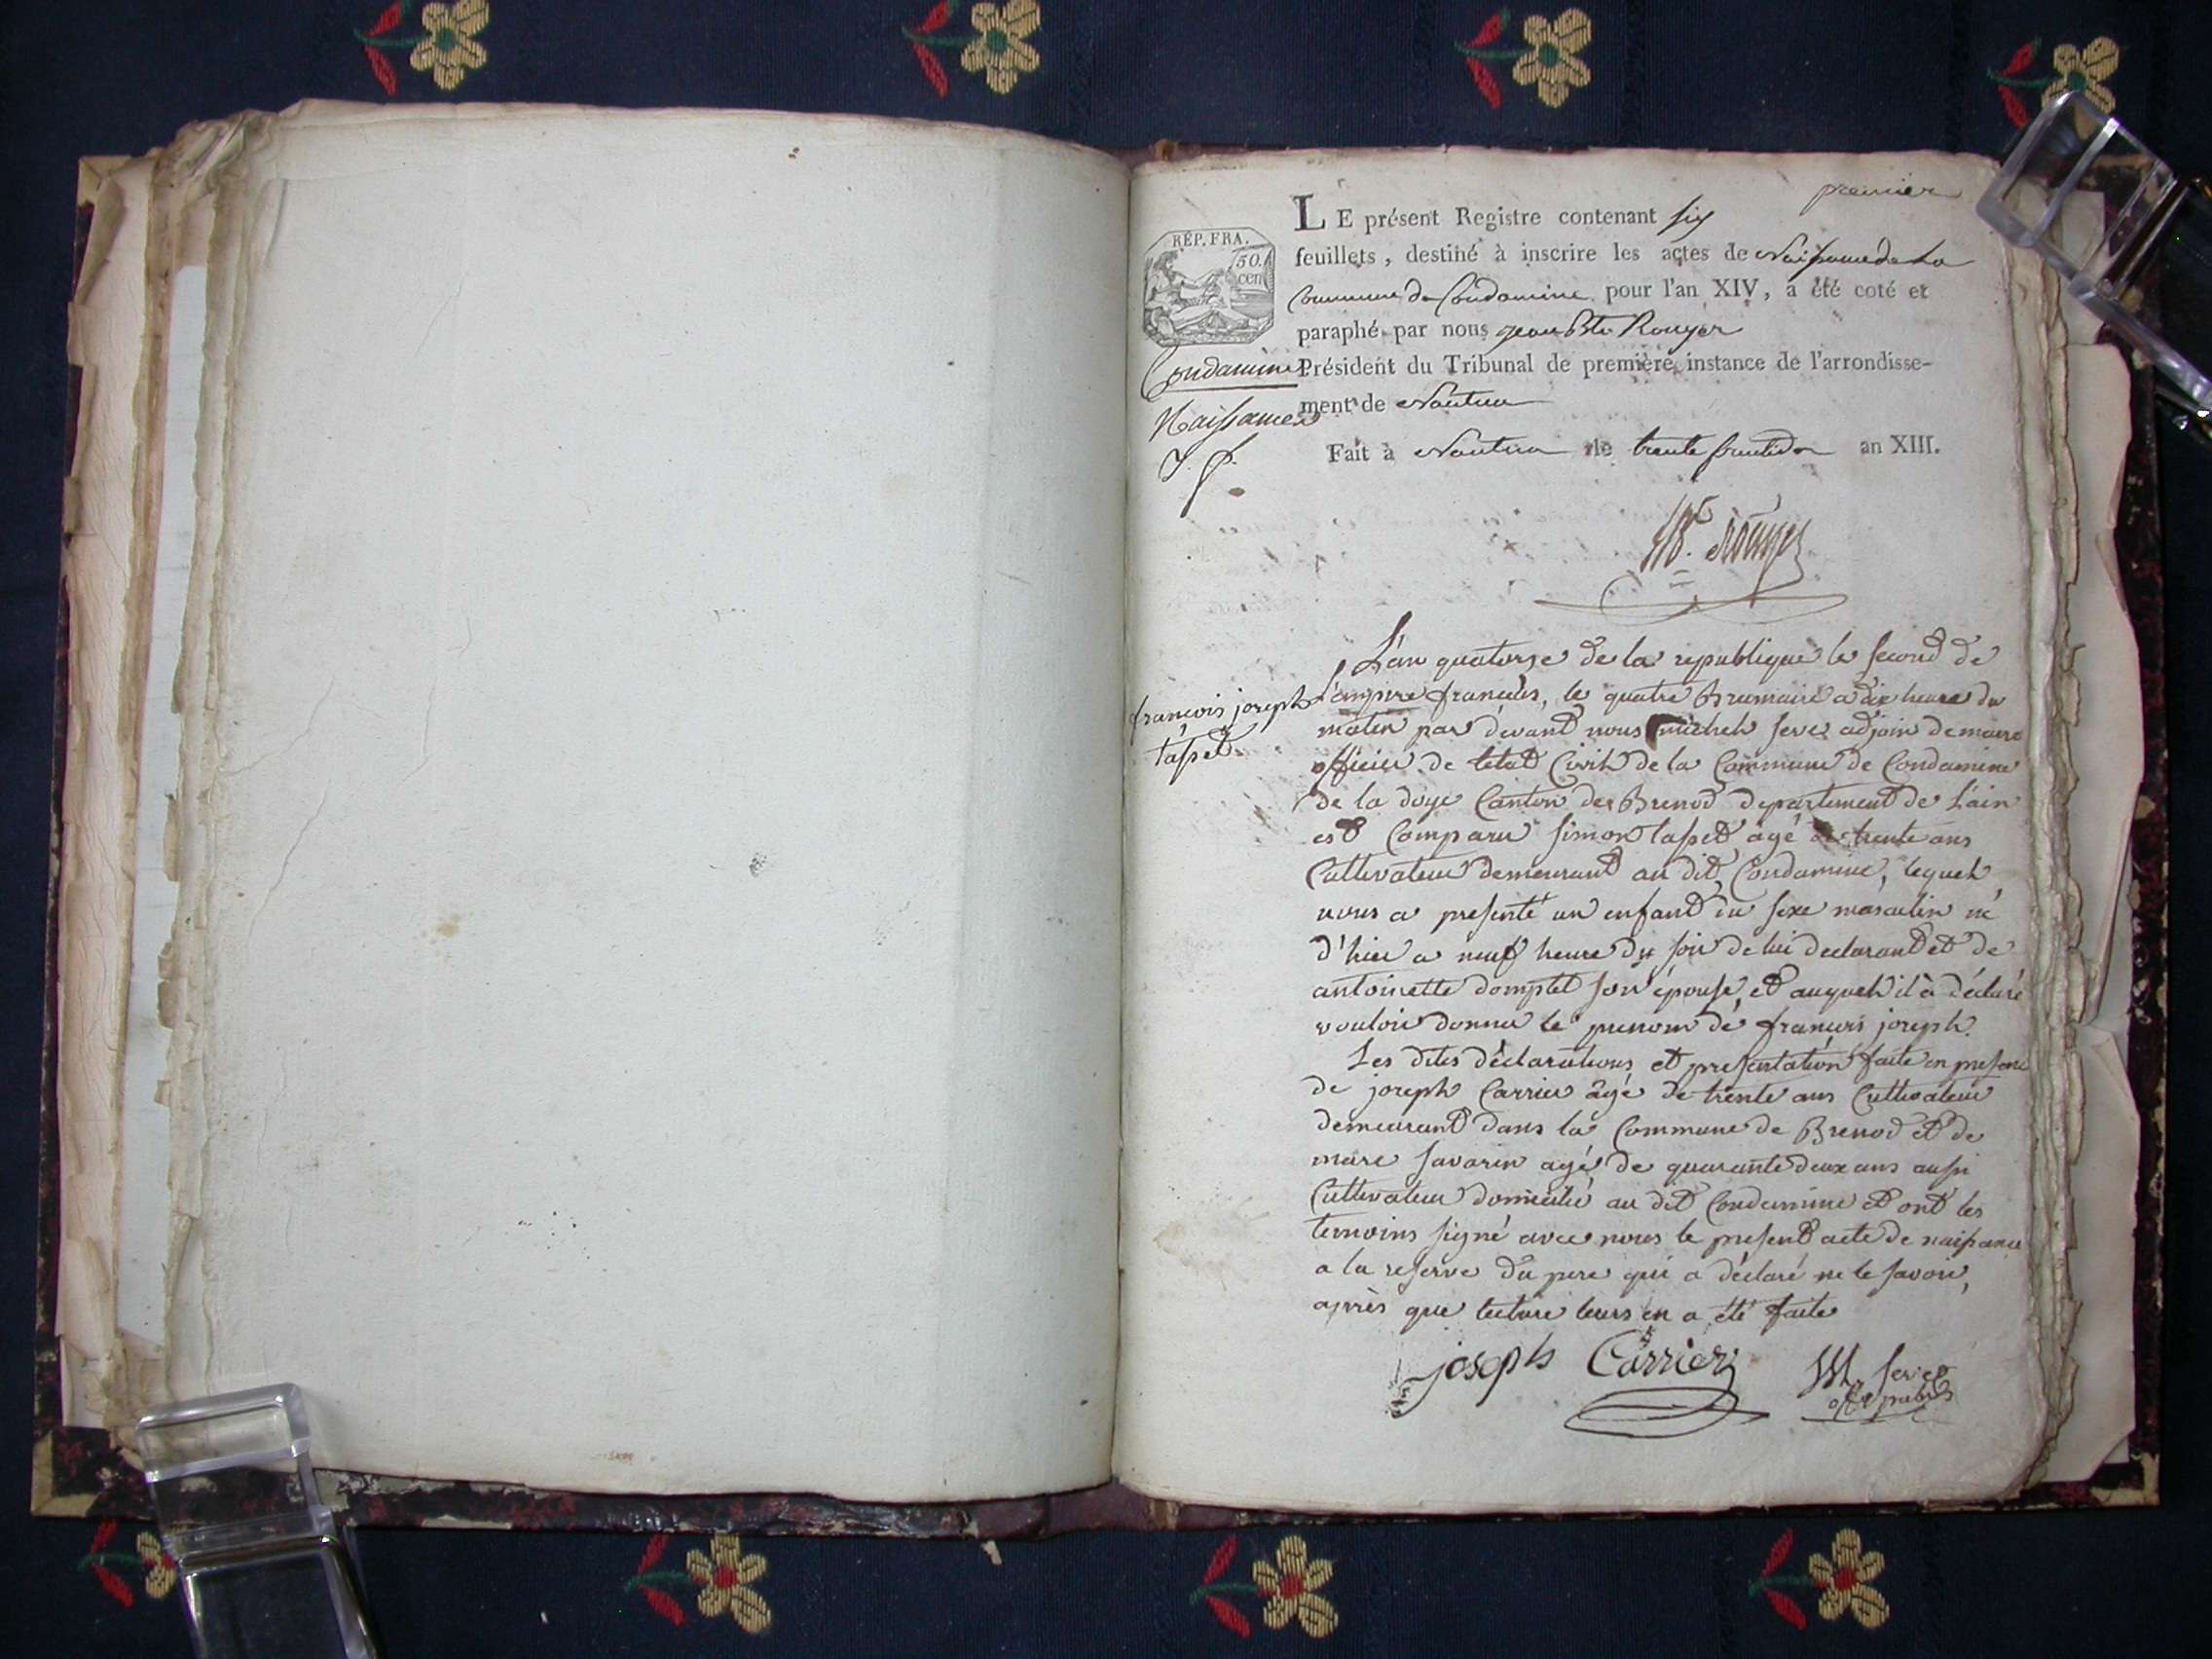 premier
LE présent Registre contenant six
feuillets, destiné à inscrire les actes de Naissance de La
Commune de Condamine pour l'an XIV, a été coté et
paraphé par nous jean Bte Rouyer
Président du Tribunal de première instance de l'arrondisse-
ment de Nantua
Fait à Nantua le trente fructidor an XIII.
RÉP. FRA.
50.
cen
Condamine
Naissances
JB. Rouyer
françois joseph
tasset
L'an quatorze de la republique le second de
l'empire francois, le quatre Brumaire a dix heure du
matin par devant nous michel serve adjoin de maire
officier de letat Civil de la Commune de Condamine
de la doye Canton de Brenod departement de L'ain
est Comparu simon tasset agé de trente ans
Cultivateur demeurant au dit Condamine, lequel
nous a presenté un enfant du sexe masculin né
d'hier a neuf heure du soir de lui declarant et de
antoinette domptet son épouse, et auquel il à déclaré
vouloir donner le prenom de francois joseph.
Les dites déclarations et presentation faite en presence
de joseph Carrier âgé de trente ans Cultivateur
demeurant dans la Commune de Brenod et de
marc savarin agé de quarante deux ans aussi
Cultivateur domicilié au dit Condamine et ont les
temoins signé avec nous le present acte de naissance
a la reserve du pere qui a déclaré ne le savoir,
après que lecture leurs en a été faite
joseph Carrier
M. serve